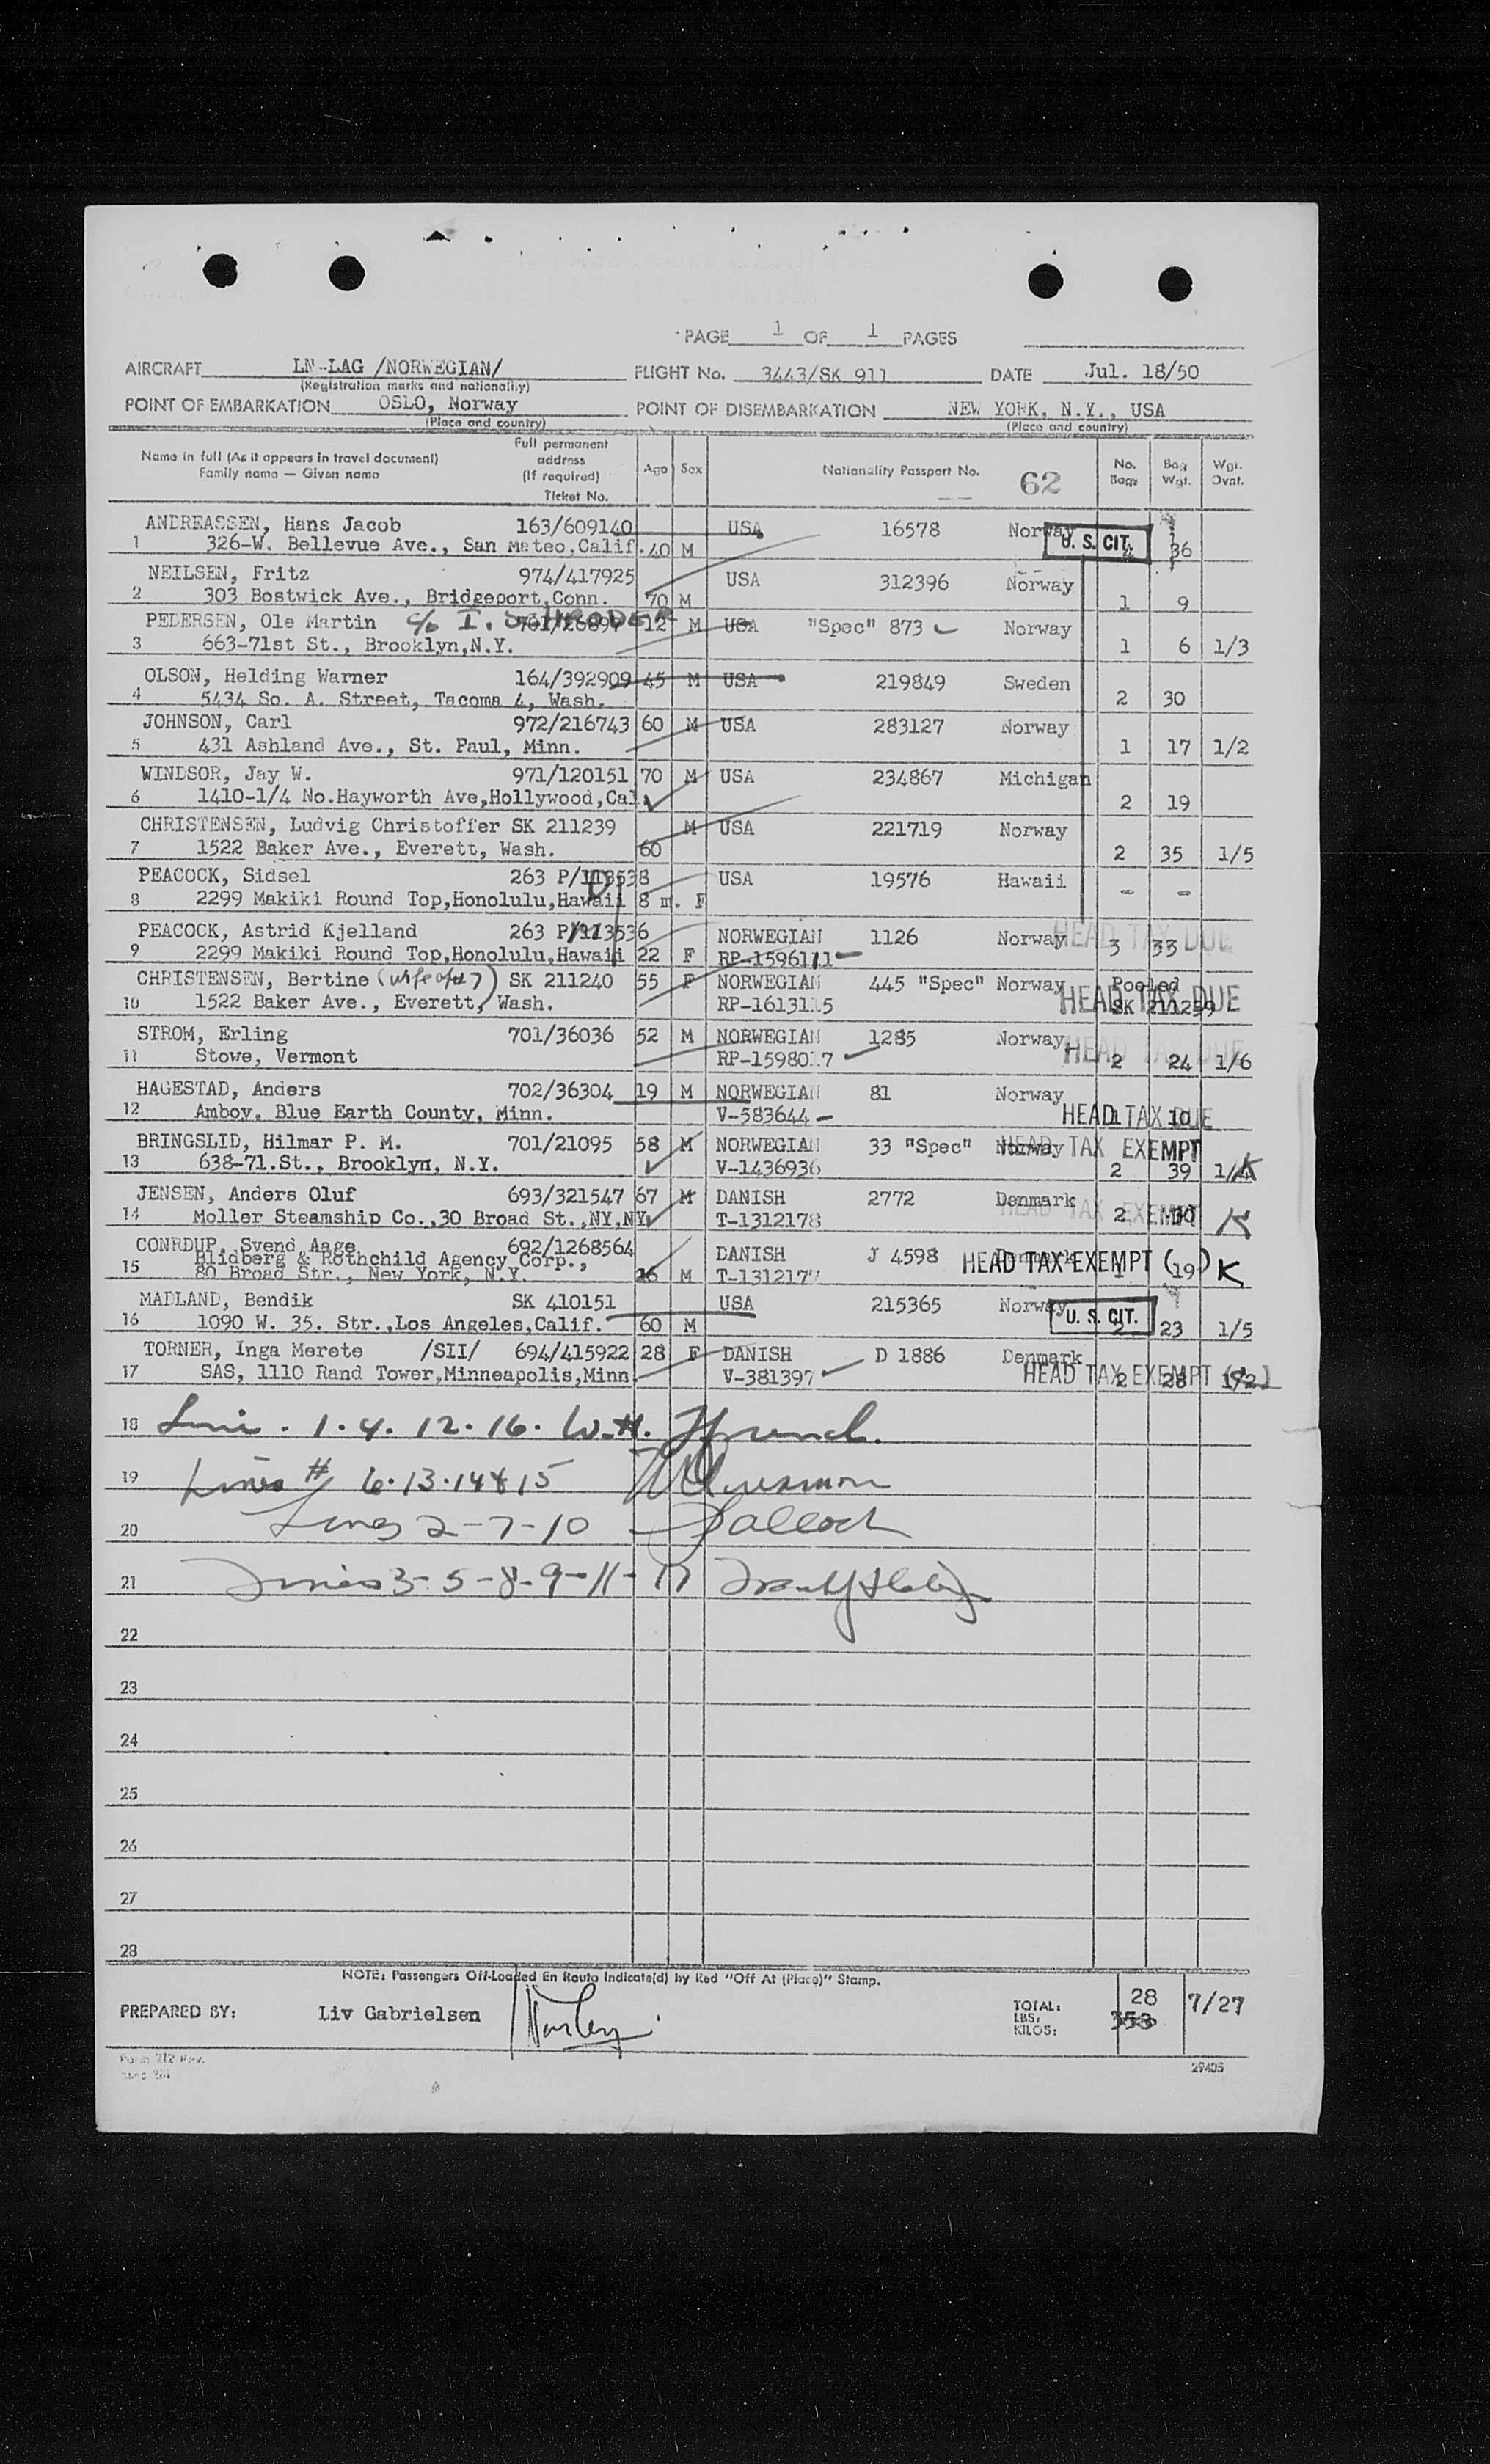 PAGE 1 OF 1 PAGES
AIRCRAFT LN-LAG /NORWEGIAN/ FLIGHT No. 3443/SK 911 DATE Jul. 18/50
(Registration marks and nationality)
POINT OF EMBARKATION OSLO, Norway POINT OF DISEMBARKATION NEW YORK, N.Y., USA
(Place and country) (Place and country)
Name in full (As it appears in travel document) Family name — Given name Full permanent address (If required) Ticket No. Age Sex Nationality Passport No. 62 No. Bags Bag Wgt. Wgt. Ovnt.
ANDREASSEN, Hans Jacob 163/609140 USA 16578 Norway U. S. CIT.
1 326-W. Bellevue Ave., San Mateo,Calif. 40 M 4 36
NEILSEN, Fritz 974/417925 USA 312396 Norway
2 303 Bostwick Ave., Bridgeport,Conn. 70 M 1 9
PEDERSEN, Ole Martin c/o I. SCHRODER 12 M USA "Spec" 873 Norway
3 663-71st St., Brooklyn,N.Y. 1 6 1/3
OLSON, Helding Warner 164/392909 45 M USA 219849 Sweden
4 5434 So. A. Street, Tacoma 4, Wash. 2 30
JOHNSON, Carl 972/216743 60 M USA 283127 Norway
5 431 Ashland Ave., St. Paul, Minn. 1 17 1/2
WINDSOR, Jay W. 971/120151 70 M USA 234867 Michigan
6 1410-1/4 No.Hayworth Ave,Hollywood,Cal. 2 19
CHRISTENSEN, Ludvig Christoffer SK 211239 M USA 221719 Norway
7 1522 Baker Ave., Everett, Wash. 60 2 35 1/5
PEACOCK, Sidsel 263 P/113538 USA 19576 Hawaii
8 2299 Makiki Round Top,Honolulu,Hawaii 8 m. F - -
PEACOCK, Astrid Kjelland 263 P/113536 NORWEGIAN 1126 Norway HEAD TAX DUE
9 2299 Makiki Round Top,Honolulu,Hawaii 22 F RP-1596111 3 33
CHRISTENSEN, Bertine (wife of #7) SK 211240 55 F NORWEGIAN 445 "Spec" Norway Pooled
10 1522 Baker Ave., Everett, Wash. RP-1613115 HEAD TAX DUE SK 211239
STROM, Erling 701/36036 52 M NORWEGIAN 1285 Norway HEAD TAX DUE
11 Stowe, Vermont RP-1598017 2 24 1/6
HAGESTAD, Anders 702/36304 19 M NORWEGIAN 81 Norway
12 Amboy, Blue Earth County, Minn. V-583644 HEAD TAX DUE 1 10
BRINGSLID, Hilmar P. M. 701/21095 58 M NORWEGIAN 33 "Spec" Norway HEAD TAX EXEMPT
13 638-71.St., Brooklyn, N.Y. V-1436936 2 39 K
JENSEN, Anders Oluf 693/321547 67 M DANISH 2772 Denmark HEAD TAX EXEMPT
14 Moller Steamship Co.,30 Broad St.,NY,NY. T-1312178 2 30 K
CONRDUP, Svend Aage 692/1268564 DANISH J 4598 Denmark HEAD TAX EXEMPT
Blidberg & Rothchild Agency Corp.,
15 80 Broad Str., New York, N.Y. 26 M T-1312177 1 (19) K
MADLAND, Bendik SK 410151 USA 215365 Norway U. S. CIT.
16 1090 W. 35. Str.,Los Angeles,Calif. 60 M 2 23 1/5
TORNER, Inga Merete /SII/ 694/415922 28 F DANISH D 1886 Denmark
17 SAS, 1110 Rand Tower,Minneapolis,Minn. V-381397 HEAD TAX EXEMPT 2 28
18 Line . 1. 4. 12. 16. W.H.
19 Lines # 6.13.14 & 15
20 Lines 2-7-10
21 Lines 3-5-8-9-11-17
22
23
24
25
26
27
28
NOTE: Passengers Off-Loaded En Route Indicate(d) by Red "Off At (Place)" Stamp.
PREPARED BY: Liv Gabrielsen TOTAL: LBS: KILOS: 28 353 7/27
29405